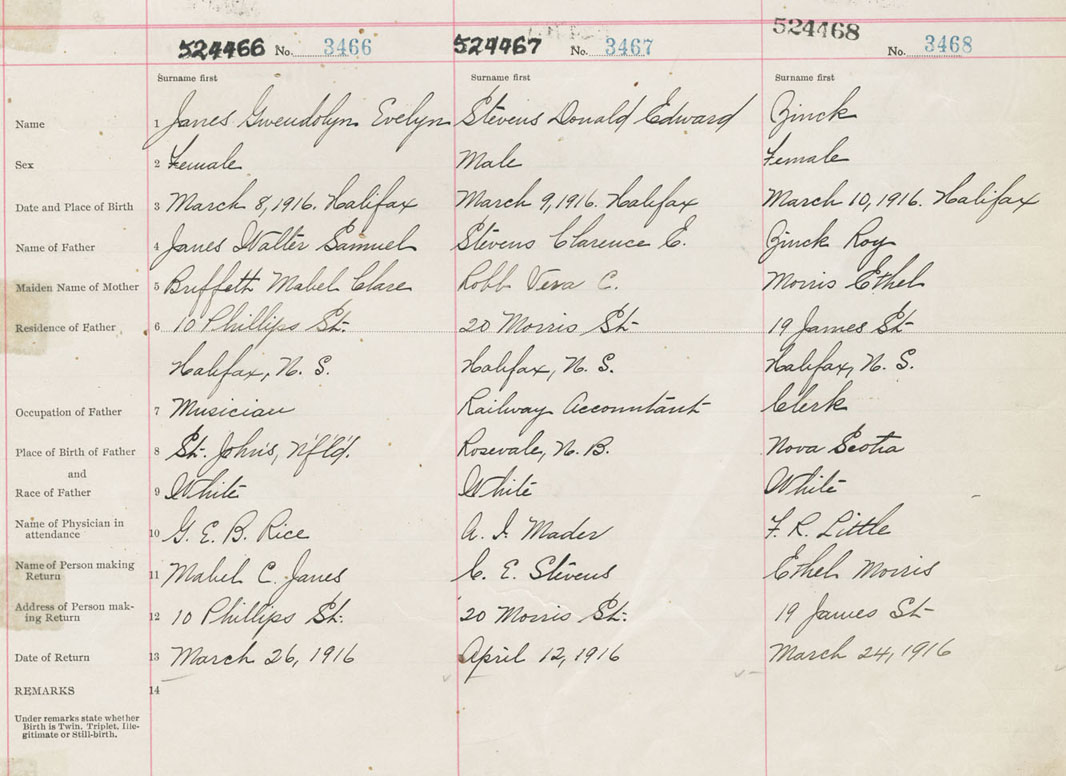 524466 No. 3466 524467 No. 3467 524468 No. 3468
Surname first Surname first Surname first
Name 1 Janes Gwendolyn Evelyn Stevens Donald Edward Zinck
Sex 2 Female Male Female
Date and Place of Birth 3 March 8, 1916. Halifax March 9, 1916. Halifax March 10, 1916. Halifax
Name of Father 4 Janes Walter Samuel Stevens Clarence E. Zinck Roy
Maiden Name of Mother 5 Buffett Mabel Clare Robb Vera C. Morris Ethel
Residence of Father 6 10 Phillips St. 20 Morris St. 19 James St.
Halifax, N. S. Halifax, N. S. Halifax, N. S.
Occupation of Father 7 Musician Railway Accountant Clerk
Place of Birth of Father 8 St. John's, N'f'l'd. Rosevale, N. B. Nova Scotia
and
Race of Father 9 White White White
Name of Physician in
attendance 10 G. E. B. Rice A. I. Mader F. R. Little
Name of Person making
Return 11 Mabel C. Janes C. E. Stevens Ethel Morris
Address of Person mak-
ing Return 12 10 Phillips St. 20 Morris St. 19 James St
Date of Return 13 March 26, 1916 April 12, 1916 March 24, 1916
REMARKS 14
Under remarks state whether
Birth is Twin, Triplet, Ille-
gitimate or Still-birth.